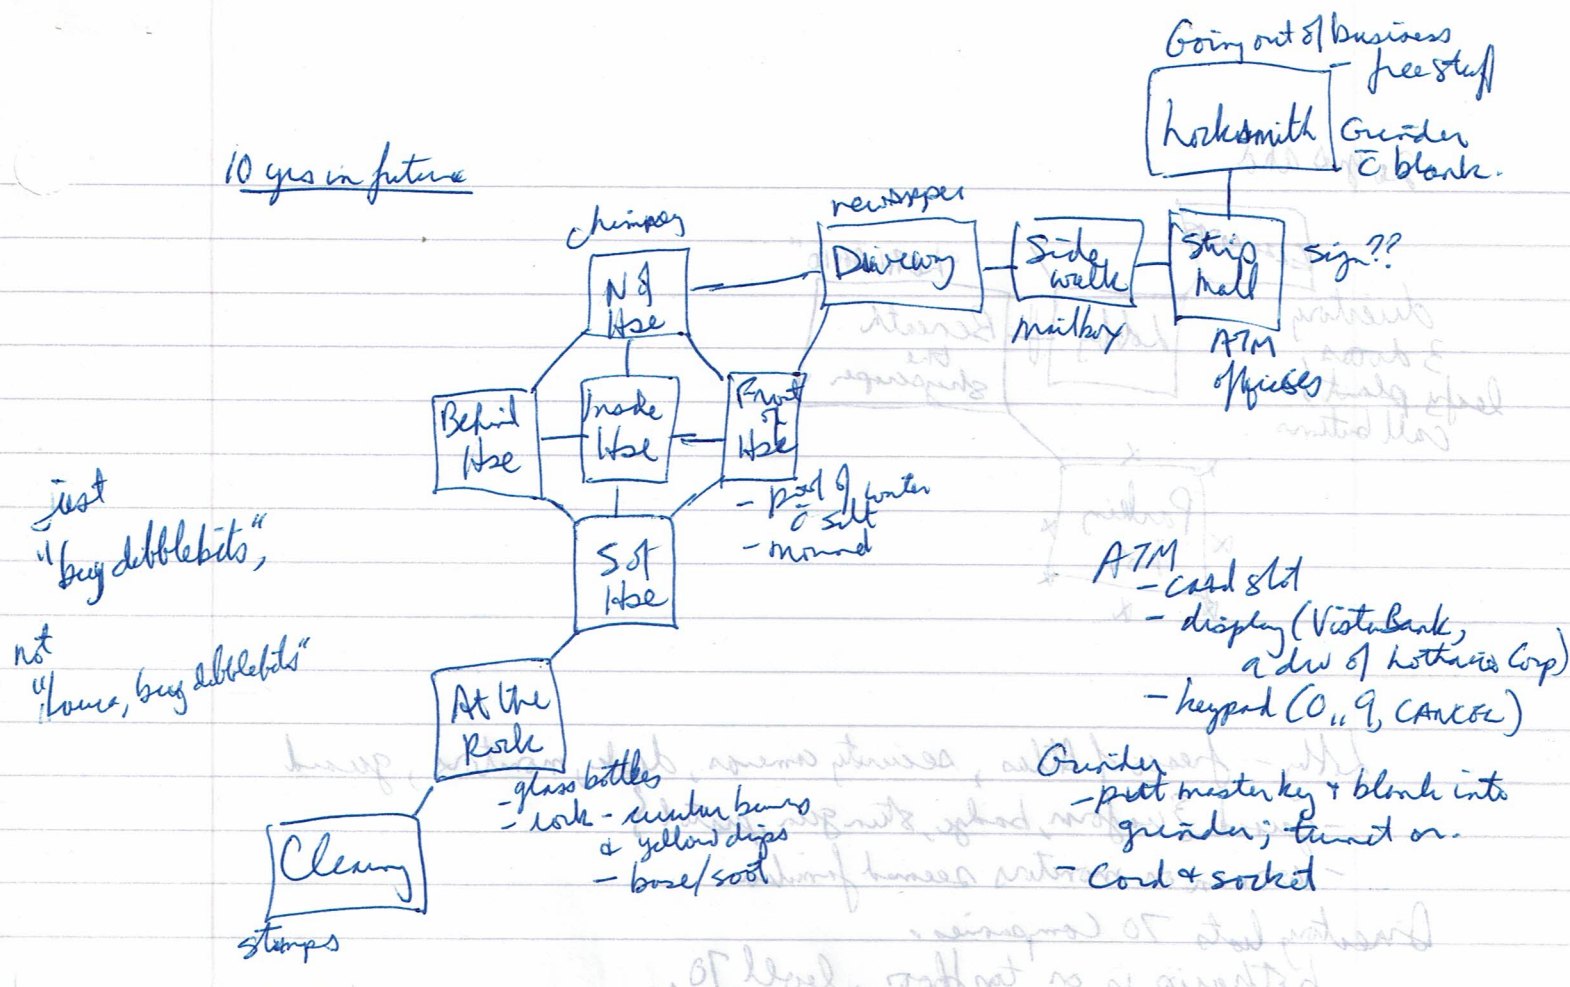 Going out of business
– free stuff
Locksmith
Grinder
c̄ blank.
10 yrs in future
chimney
N of
Hse
newspaper
Driveway
Side
walk
mailbox
Strip
Mall
sign??
ATM
offices
Behind
Hse
Inside
Hse
Front
of
Hse
– pool of water
c̄ silt
– mound
S of
Hse
just
"bug dibblebits",
not
"Laura, bug dibblebits"
At the
Rock
– glass bottles
– rock – circular burns
& yellow drips
– base/soot
Clearing
stumps
ATM
– card slot
– display (VistaBank,
a div of Lothario Corp)
– keypad (0..9, CANCEL)
Grinder
– put master key & blank into
grinder; turn it on.
– Cord & socket